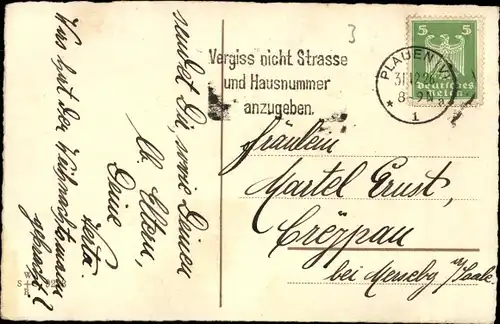 3
Vergiss nicht Strasse
und Hausnummer
anzugeben.
PLAUEN
31.12.26
8-9 N
* 1
5 5
Deutsches
Reich
Fräulein
Martel Ernst,
Creypau
bei Mersebg a/Saale
sendet Dir, sowie Deinen
lb. Eltern,
Deine
Herta.
Was hat der Weihnachtsmann
gebracht?